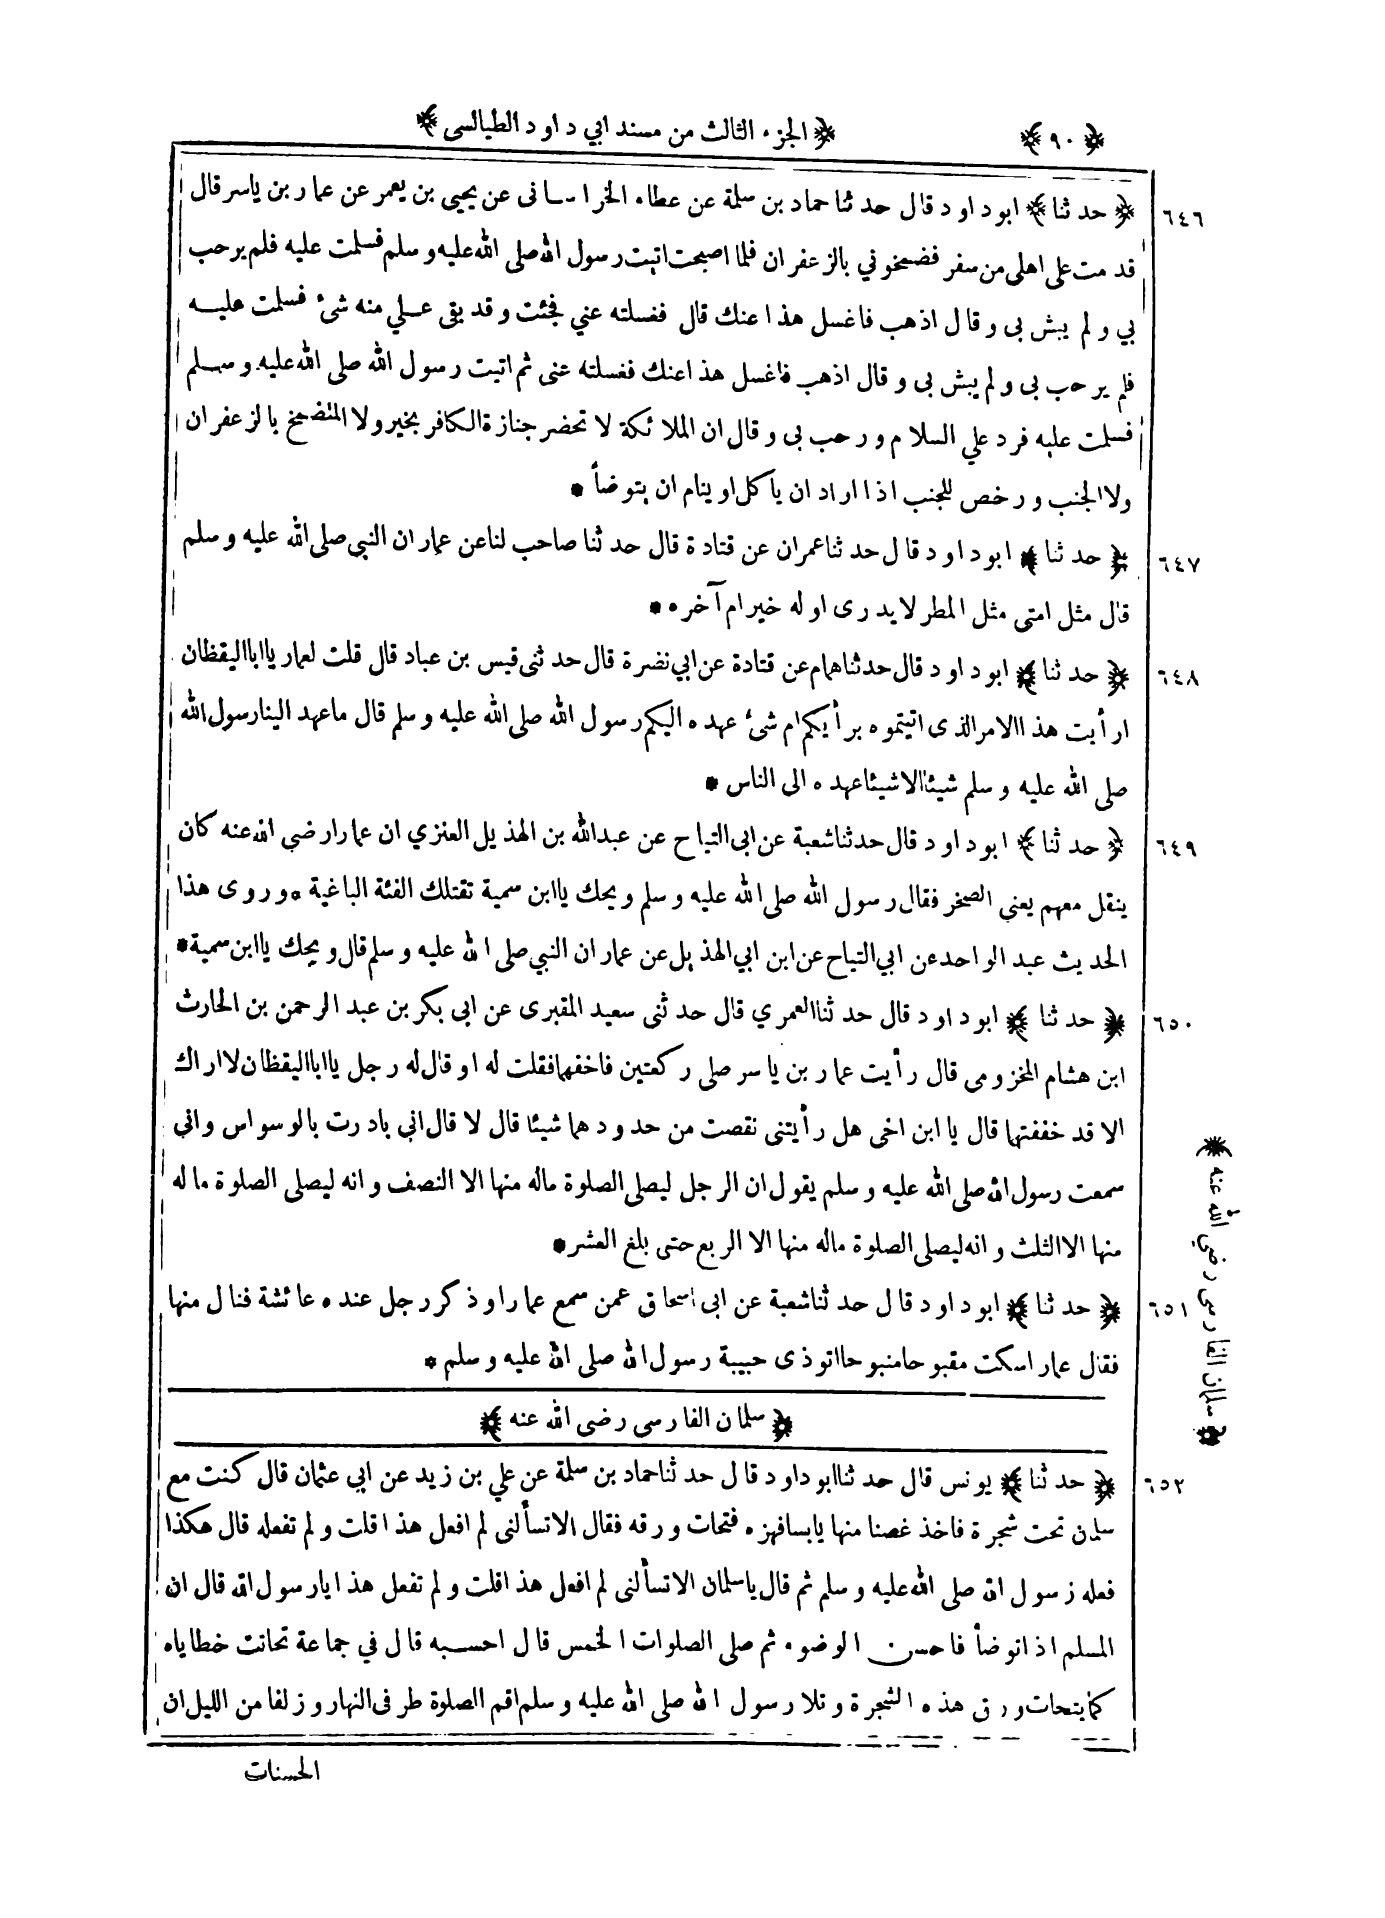 ﴿٩٠﴾ ﴿الجزء الثالث من مسند ابي داود الطيالسى﴾
٦٤٦ ﴿حدثنا﴾ ابو داود قال حدثنا حماد بن سلمة عن عطاء الخراسانى عن يحيى بن يعمر عن عمار بن ياسر قال
قدمت على اهلى من سفر فضمخوني بالزعفران فلما اصبحت اتيت رسول الله صلى الله عليه وسلم فسلمت عليه فلم يرحب
بي ولم يبش بى وقال اذهب فاغسل هذا عنك قال فغسلته عني فجئت وقد بقى علي منه شئ فسلمت عليه
فلم يرحب بى ولم يبش بى وقال اذهب فاغسل هذا عنك فغسلته عنى ثم اتيت رسول الله صلى الله عليه وسلم
فسلمت عليه فرد علي السلام ورحب بى وقال ان الملائكة لا تحضر جنازة الكافر بخير ولا المتضمخ بالزعفران
ولا الجنب ورخص للجنب اذا اراد ان ياكل او ينام ان يتوضأ *
٦٤٧ ﴿حدثنا﴾ ابو داود قال حدثنا عمران عن قتادة قال حدثنا صاحب لنا عن عمار ان النبي صلى الله عليه وسلم
قال مثل امتى مثل المطر لا يدرى اوله خير ام آخره *
٦٤٨ ﴿حدثنا﴾ ابو داود قال حدثنا همام عن قتادة عن ابي نضرة قال حدثنى قيس بن عباد قال قلت لعمار يا ابا اليقظان
ارأيت هذا الامر الذى اتيتموه برأيكم ام شئ عهده اليكم رسول الله صلى الله عليه وسلم قال ما عهد الينا رسول الله
صلى الله عليه وسلم شيئا الا شيئا عهده الى الناس *
٦٤٩ ﴿حدثنا﴾ ابو داود قال حدثنا شعبة عن ابى التياح عن عبد الله بن الهذيل العنزي ان عمارا رضي الله عنه كان
ينقل معهم يعني الصخر فقال رسول الله صلى الله عليه وسلم ويحك يا ابن سمية تقتلك الفئة الباغية * وروى هذا
الحديث عبد الواحد عن ابي التياح عن ابن ابي الهذيل عن عمار ان النبي صلى الله عليه وسلم قال ويحك يا ابن سمية *
٦٥٠ ﴿حدثنا﴾ ابو داود قال حدثنا العمري قال حدثنى سعيد المقبرى عن ابى بكر بن عبد الرحمن بن الحارث
ابن هشام المخزومى قال رأيت عمار بن ياسر صلى ركعتين فاخفهما فقلت له او قال له رجل يا ابا اليقظان لا اراك
الا قد خففتها قال يا ابن اخى هل رأيتنى نقصت من حدودهما شيئا قال لا قال انى بادرت بالوسواس وانى
سمعت رسول الله صلى الله عليه وسلم يقول ان الرجل ليصلى الصلوة ماله منها الا النصف وانه ليصلى الصلوة ماله
منها الا الثلث وانه ليصلى الصلوة ماله منها الا الربع حتى بلغ العشر *
٦٥١ ﴿حدثنا﴾ ابو داود قال حدثنا شعبة عن ابى اسحاق عمن سمع عمارا وذكر رجل عنده عائشة فنال منها
فقال عمار اسكت مقبوحا منبوحا اتوذى حبيبة رسول الله صلى الله عليه وسلم *
﴿سلمان الفارسى رضى الله عنه﴾
﴿سلمان الفارسى رضي الله عنه﴾
٦٥٢ ﴿حدثنا﴾ يونس قال حدثنا ابو داود قال حدثنا حماد بن سلمة عن علي بن زيد عن ابي عثمان قال كنت مع
سلمان تحت شجرة فاخذ غصنا منها يابسا فهزه فتحات ورقه فقال الا تسألنى لم افعل هذا قلت ولم تفعله قال هكذا
فعله رسول الله صلى الله عليه وسلم ثم قال يا سلمان الا تسألنى لم افعل هذا قلت ولم تفعل هذا يا رسول الله قال ان
المسلم اذا توضأ فاحسن الوضوء ثم صلى الصلوات الخمس قال احسبه قال في جماعة تحاتت خطاياه
كما يتحات ورق هذه الشجرة وتلا رسول الله صلى الله عليه وسلم اقم الصلوة طرفى النهار وزلفا من الليل ان
الحسنات